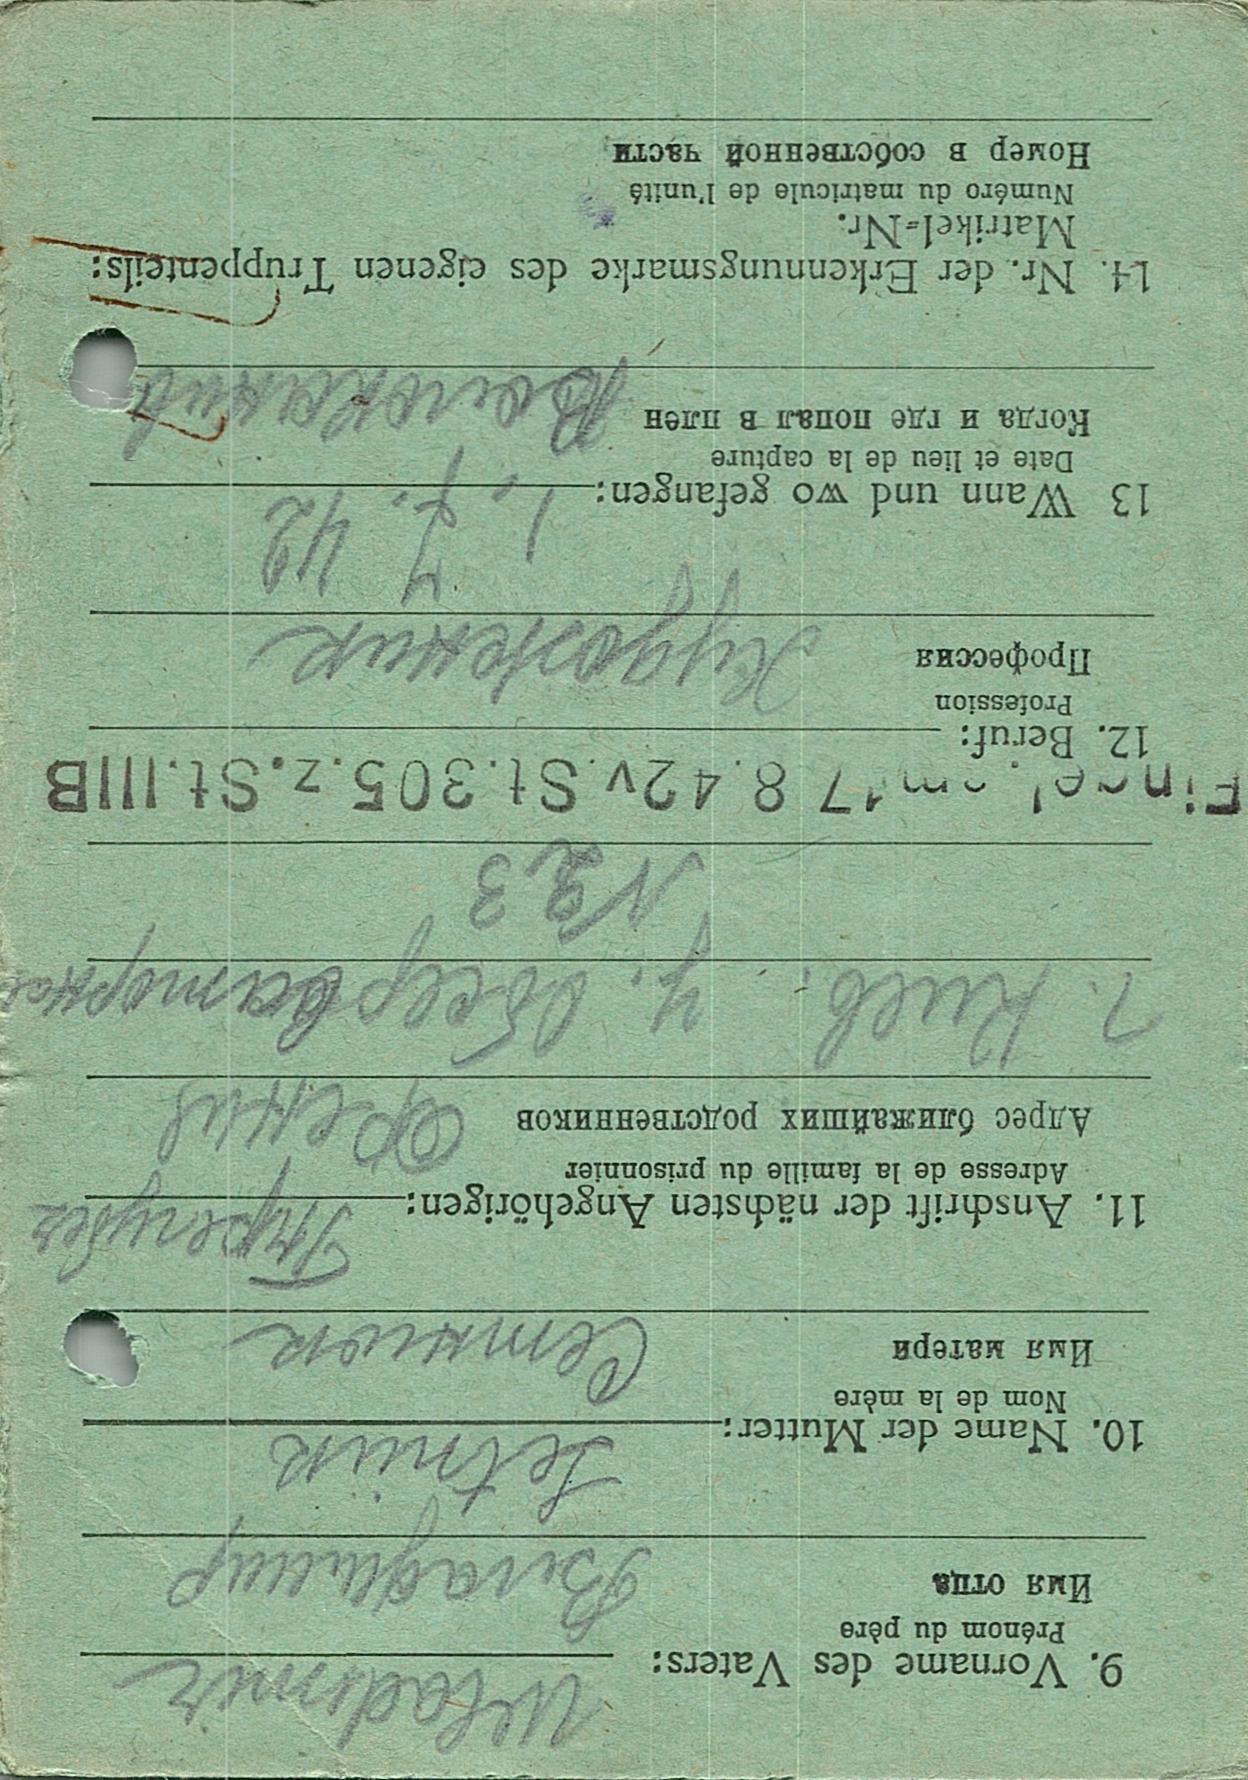 9. Vorname des Vaters: Wladimir
Prénom du père
Имя отца Владимир
Setnük
10. Name der Mutter:
Nom de la mère
Имя матери Сетнюк
11. Anschrift der nächsten Angehörigen:
Adresse de la famille du prisonnier
Адрес ближайших родственников Фения
г. Киев. у. Обсерваторная
N 23
Eingel. am 17 8.42 v. St.305. z. St.IIIB
12. Beruf:
Profession
Профессия Художник
13 Wann und wo gefangen: 1, 7. 42
Date et lieu de la capture
Когда и где попал в плен
14. Nr. der Erkennungsmarke des eigenen Truppenteils:
Matrikel=Nr.
Numéro du matricule de l'unité
Номер в собственной части